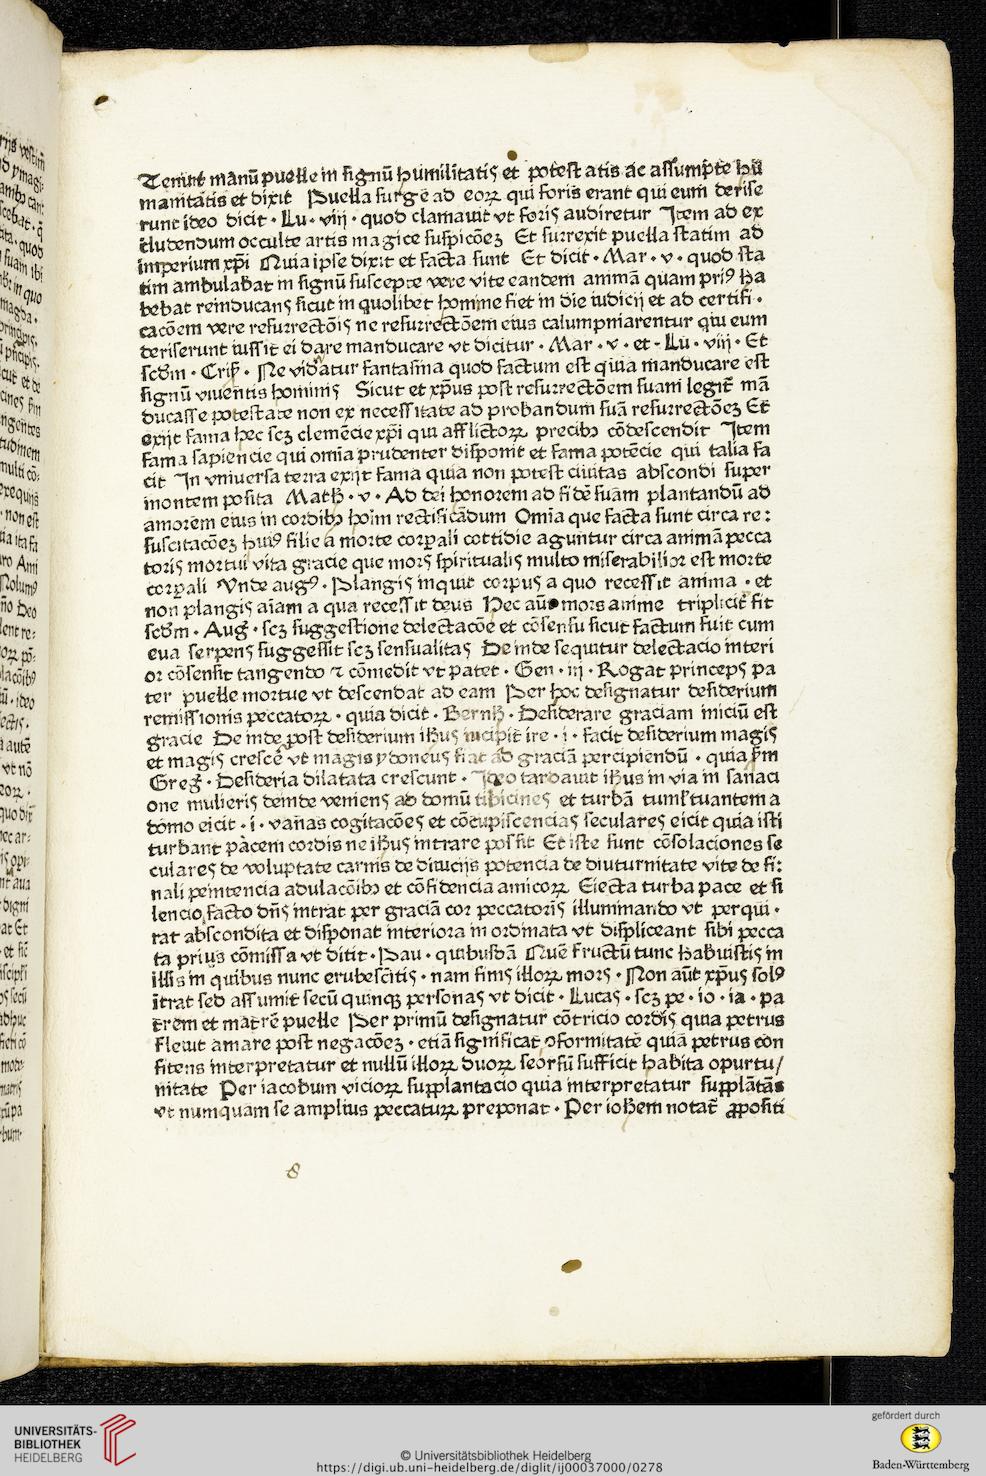 Tenuit manū puelle in signū humilitatis et potestatis ac assumpte hu
manitatis et dixit Puella surge ad eoꝝ qui foris erant qui eum derise
runt ideo dicit · Lu · viij · quod clamauit vt foris audiretur Item ad ex
cludendum occulte artis magice suspicōeꝫ Et surrexit puella statim ad
imperium xp̄i Quia ipse dixit et facta sunt Et dicit · Mar · v · quod sta
tim ambulabat in signū suscepte vere vite eandem animā quam priꝰ ha
bebat reinducans sicut in quolibet homine fiet in die iudicij et ad certifi ·
cacōem vere resurrectōis ne resurrectōem eius calumpniarentur qui eum
deriserunt iussit ei dare manducare vt dicitur · Mar · v · et · Lu · viij · Et
scd̄m · Cris̄ · Ne videatur fantasma quod factum est quia manducare est
signū viuentis hominis Sicut et xp̄us post resurrectōem suam legit̄ mā
ducasse potestate non ex necessitate ad probandum suā resurrectōeꝫ Et
exijt fama hec scꝫ clemēcie xp̄i qui afflictoꝝ precibꝫ cōdescendit Item
fama sapiencie qui om̄ia prudenter disponit et fama potēcie qui talia fa
cit In vniuersa terra exijt fama quia non potest ciuitas abscondi super
montem posita Math̄ · v · Ad dei honorem ad fidē suam plantandū ad
amorem eius in cordibꝫ hoīm rectificādum Om̄ia que facta sunt circa re:
suscitacōeꝫ huiꝰ filie a morte corꝑali cottidie aguntur circa animā pecca
toris mortui vita gracie que mors spiritualis multo miserabilior est morte
corꝑali Vnde augꝰ · Plangis inquit corpus a quo recessit anima · et
non plangis aīam a qua recessit deus Hec aūt mors anime tripliciť fit
scd̄m · Auḡ · scꝫ suggestione delectacōe et cōsensu sicut factum fuit cum
eua serpens suggessit scꝫ sensualitas Deinde sequitur delectacio interi
or cōsensit tangendo ⁊ cōmedit vt patet · Gen · iij · Rogat princeps pa
ter puelle mortue vt descendat ad eam Per hoc designatur desiderium
remissionis peccatoꝝ · quia dicit · Bernh̄ · Desiderare graciam iniciū est
gracie Deinde post desiderium ih̄us incipit ire · i · facit desiderium magis
et magis crescē vt magis ydoneus fiat ad graciā percipiendū · quia s̄m
Greḡ · Desideria dilatata crescunt · Ideo tardauit ih̄us in via in sanaci
one mulieris deinde veniens ad domū tibicines et turbā tumltuantem a
domo eicit · i · vanas cogitacōes et cōcupiscencias seculares eicit quia isti
turbant pacem cordis ne ih̄us intrare possit Et iste sunt cōsolaciones se
culares de voluptate carnis de diuicijs potencia de diuturnitate vite de fi:
nali penitencia adulacōibꝫ et cōfidencia amicoꝝ Eiecta turba pace et si
lencio facto dn̄s intrat per graciā cor peccatoris illuminando vt perqui ·
rat abscondita et disponat interiora inordinata vt displiceant sibi pecca
ta prius cōmissa vt dicit · Pau · quibusdā Quē fructū tunc habuistis in
illis in quibus nunc erubescitis · nam finis illoꝝ mors · Non aūt xp̄us solꝰ
ītrat sed assumit secū quinqꝫ personas vt dicit · Lucas · scꝫ pe · io · ia · pa
trem et matrē puelle Per primū designatur cōtricio cordis quia petrus
fleuit amare post negacōeꝫ · etiā significat ↄformitatē quia petrus con
fitens interpretatur et nullū illoꝝ duoꝝ seorsū sufficit habita opurtu/
nitate Per iacobum vicioꝝ supplantacio quia interpretatur supplātās
vt numquam se amplius peccaturꝝ preponat · Per ioh̄em notať ꝓpositi
8
UNIVERSITÄTS-
BIBLIOTHEK
HEIDELBERG
© Universitätsbibliothek Heidelberg
https://digi.ub.uni-heidelberg.de/diglit/ij00037000/0278
gefördert durch
Baden-Württemberg